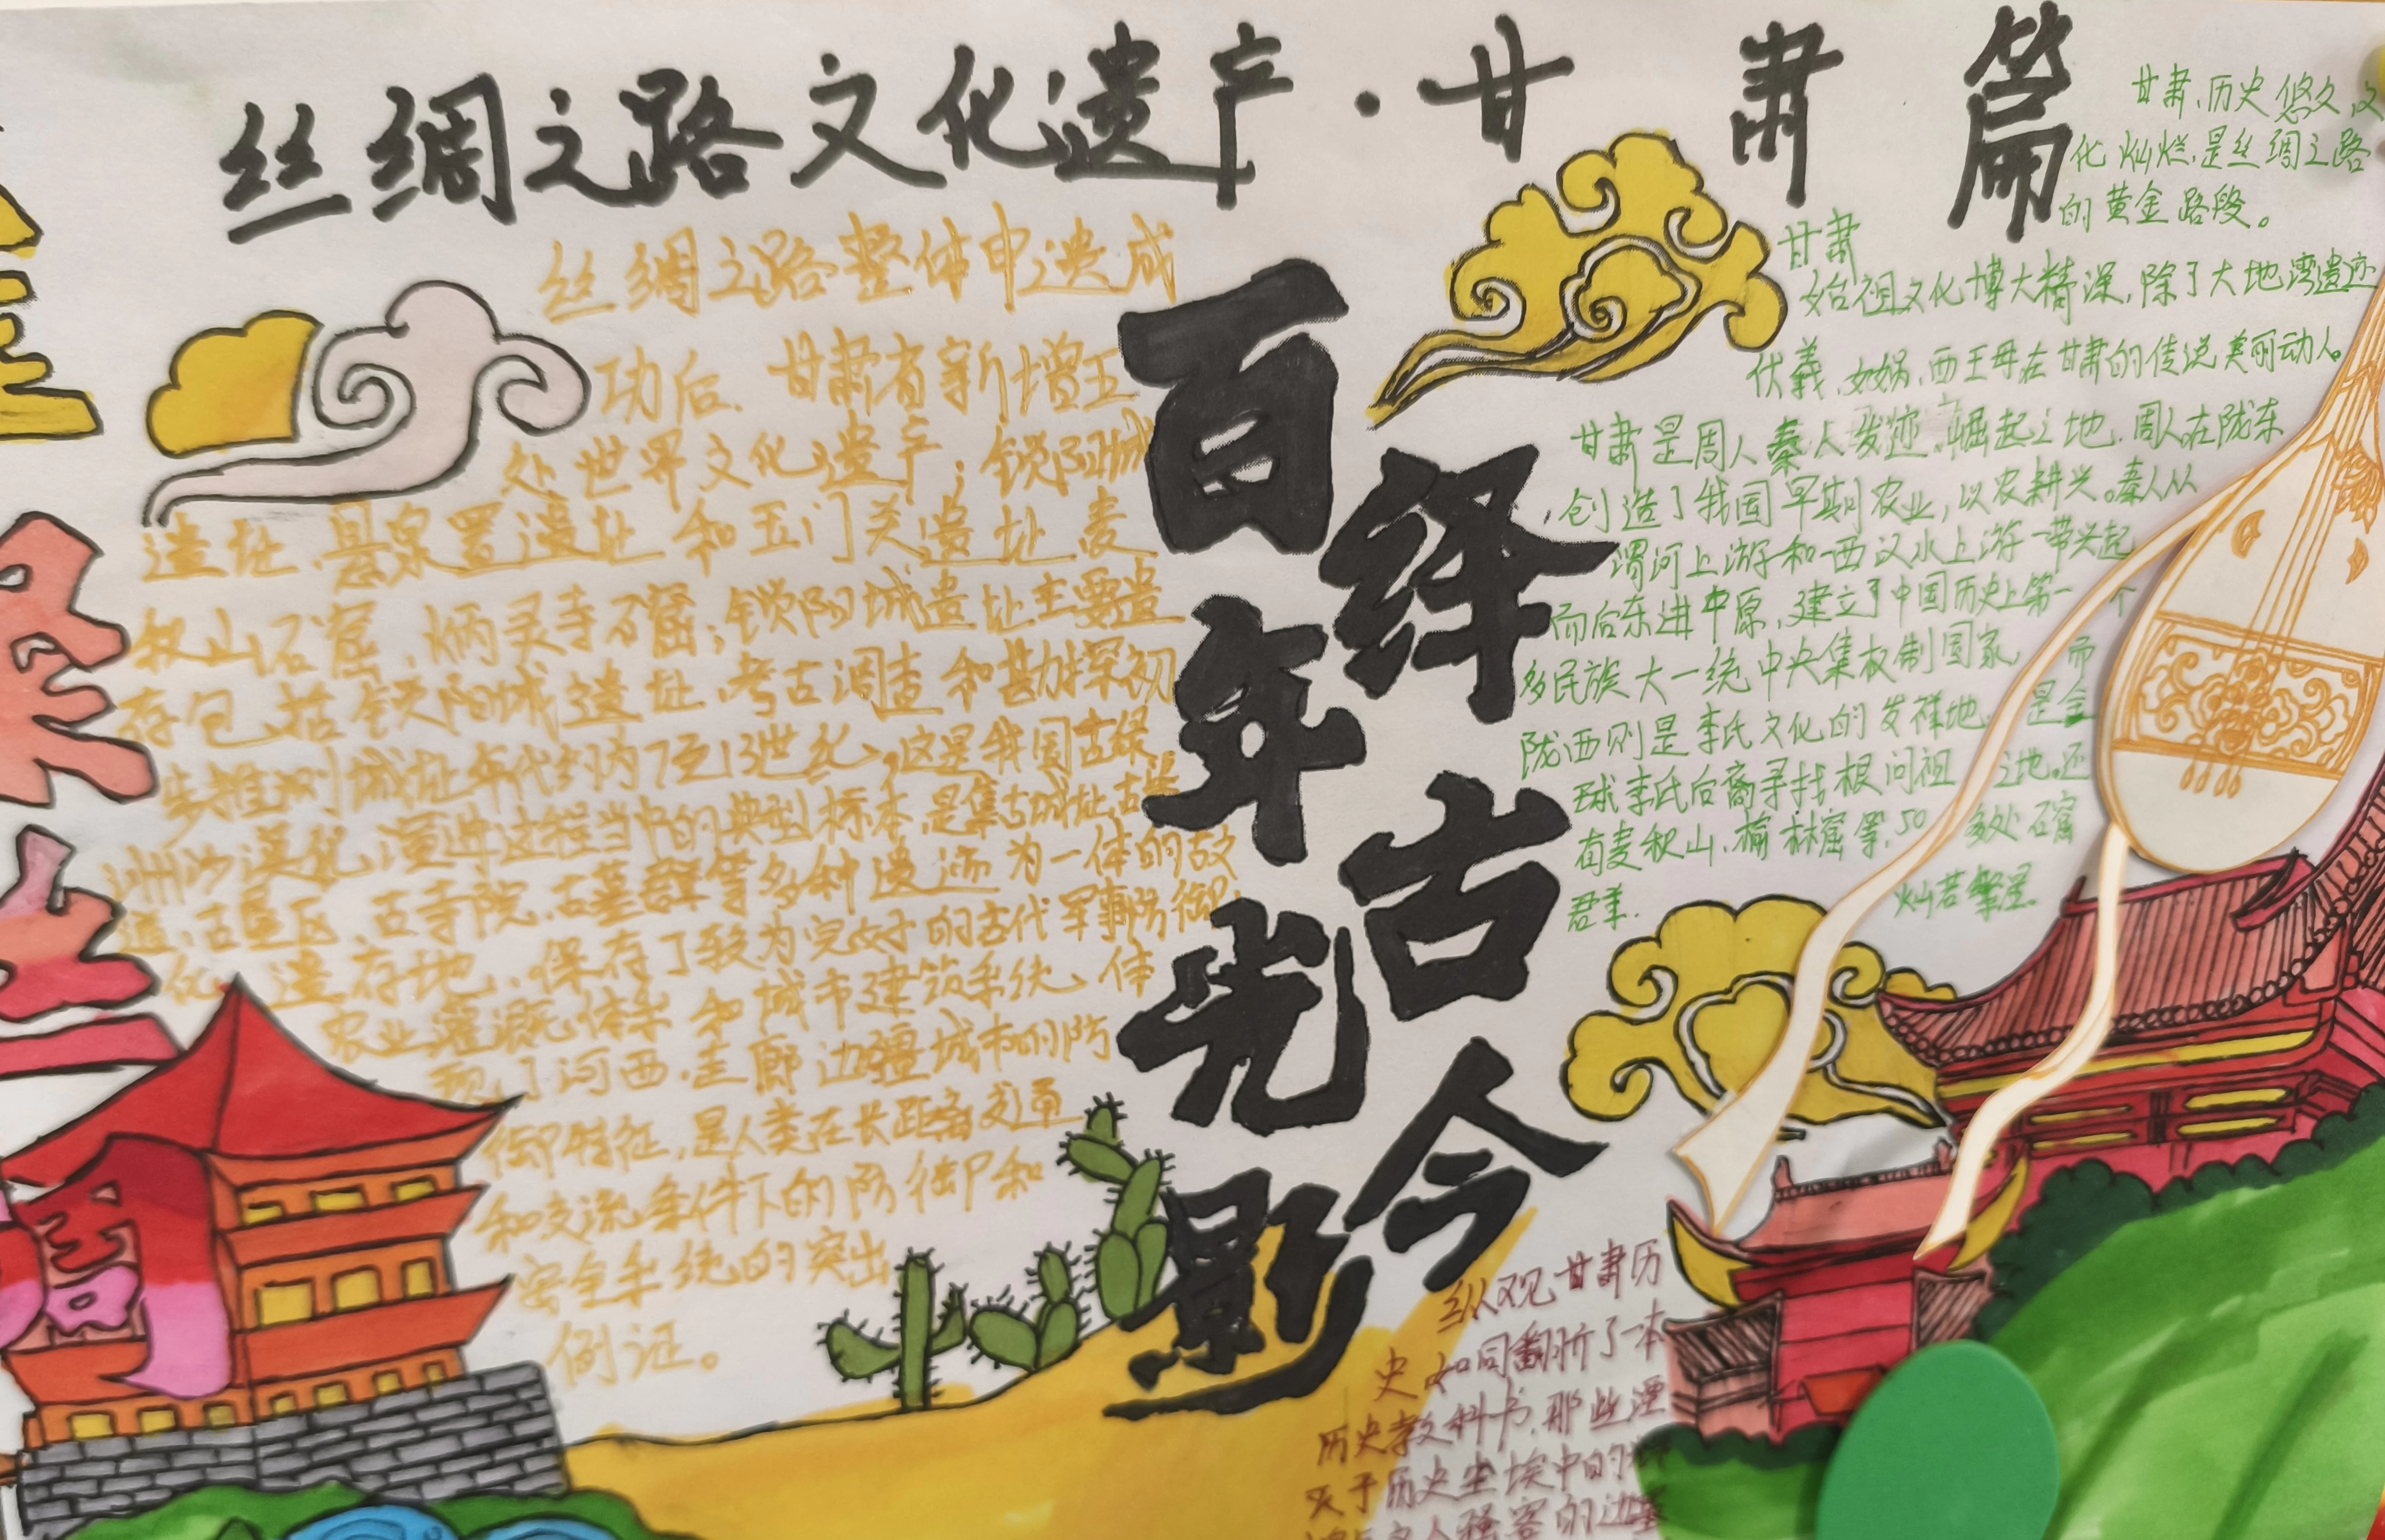 丝绸之路文化遗产·甘肃篇
丝绸之路整体申遗成
功后、甘肃省新增五
处世界文化遗产；锁阳城
遗址、悬泉置遗址和玉门关遗址麦
积山石窟、炳灵寺石窟；锁阳城遗址主要遗
存包括锁阳城遗址、考古调查和勘探初
步推测城址年代约为7至13世纪、这是我国古绿
洲沙漠化演进过程当中的典型标本、是集古城址、古渠
道、古垦区、古寺院、古墓群等多种遗迹为一体的古文
化遗存地、保存了较为完好的古代军事防御、
农业灌溉体系和城市建筑系统、体
现了河西走廊边疆城市的防
御特征，是人类在长距离交通
和交流条件下的防御和
安全系统的突出
例证。
百年光影
绎古今
甘肃、历史悠久、文
化灿烂、是丝绸之路
的黄金路段。
甘肃
始祖文化博大精深，除了大地湾遗迹
伏羲、女娲、西王母在甘肃的传说美丽动人。
甘肃是周人秦人发迹、崛起之地、周人在陇东
创造了我国早期农业，以农耕兴。秦人从
渭河上游和西汉水上游一带兴起
而后东进中原，建立了中国历史上第一个
多民族大一统中央集权制国家，而
陇西则是李氏文化的发祥地、是全
球李氏后裔寻找根问祖之地。还
有麦积山、榆林窟等，50多处石窟
君羊、灿若繁星。
纵观甘肃历
史如同翻开了一本
历史教科书、那些湮
灭于历史尘埃中的
人骚客的边塞